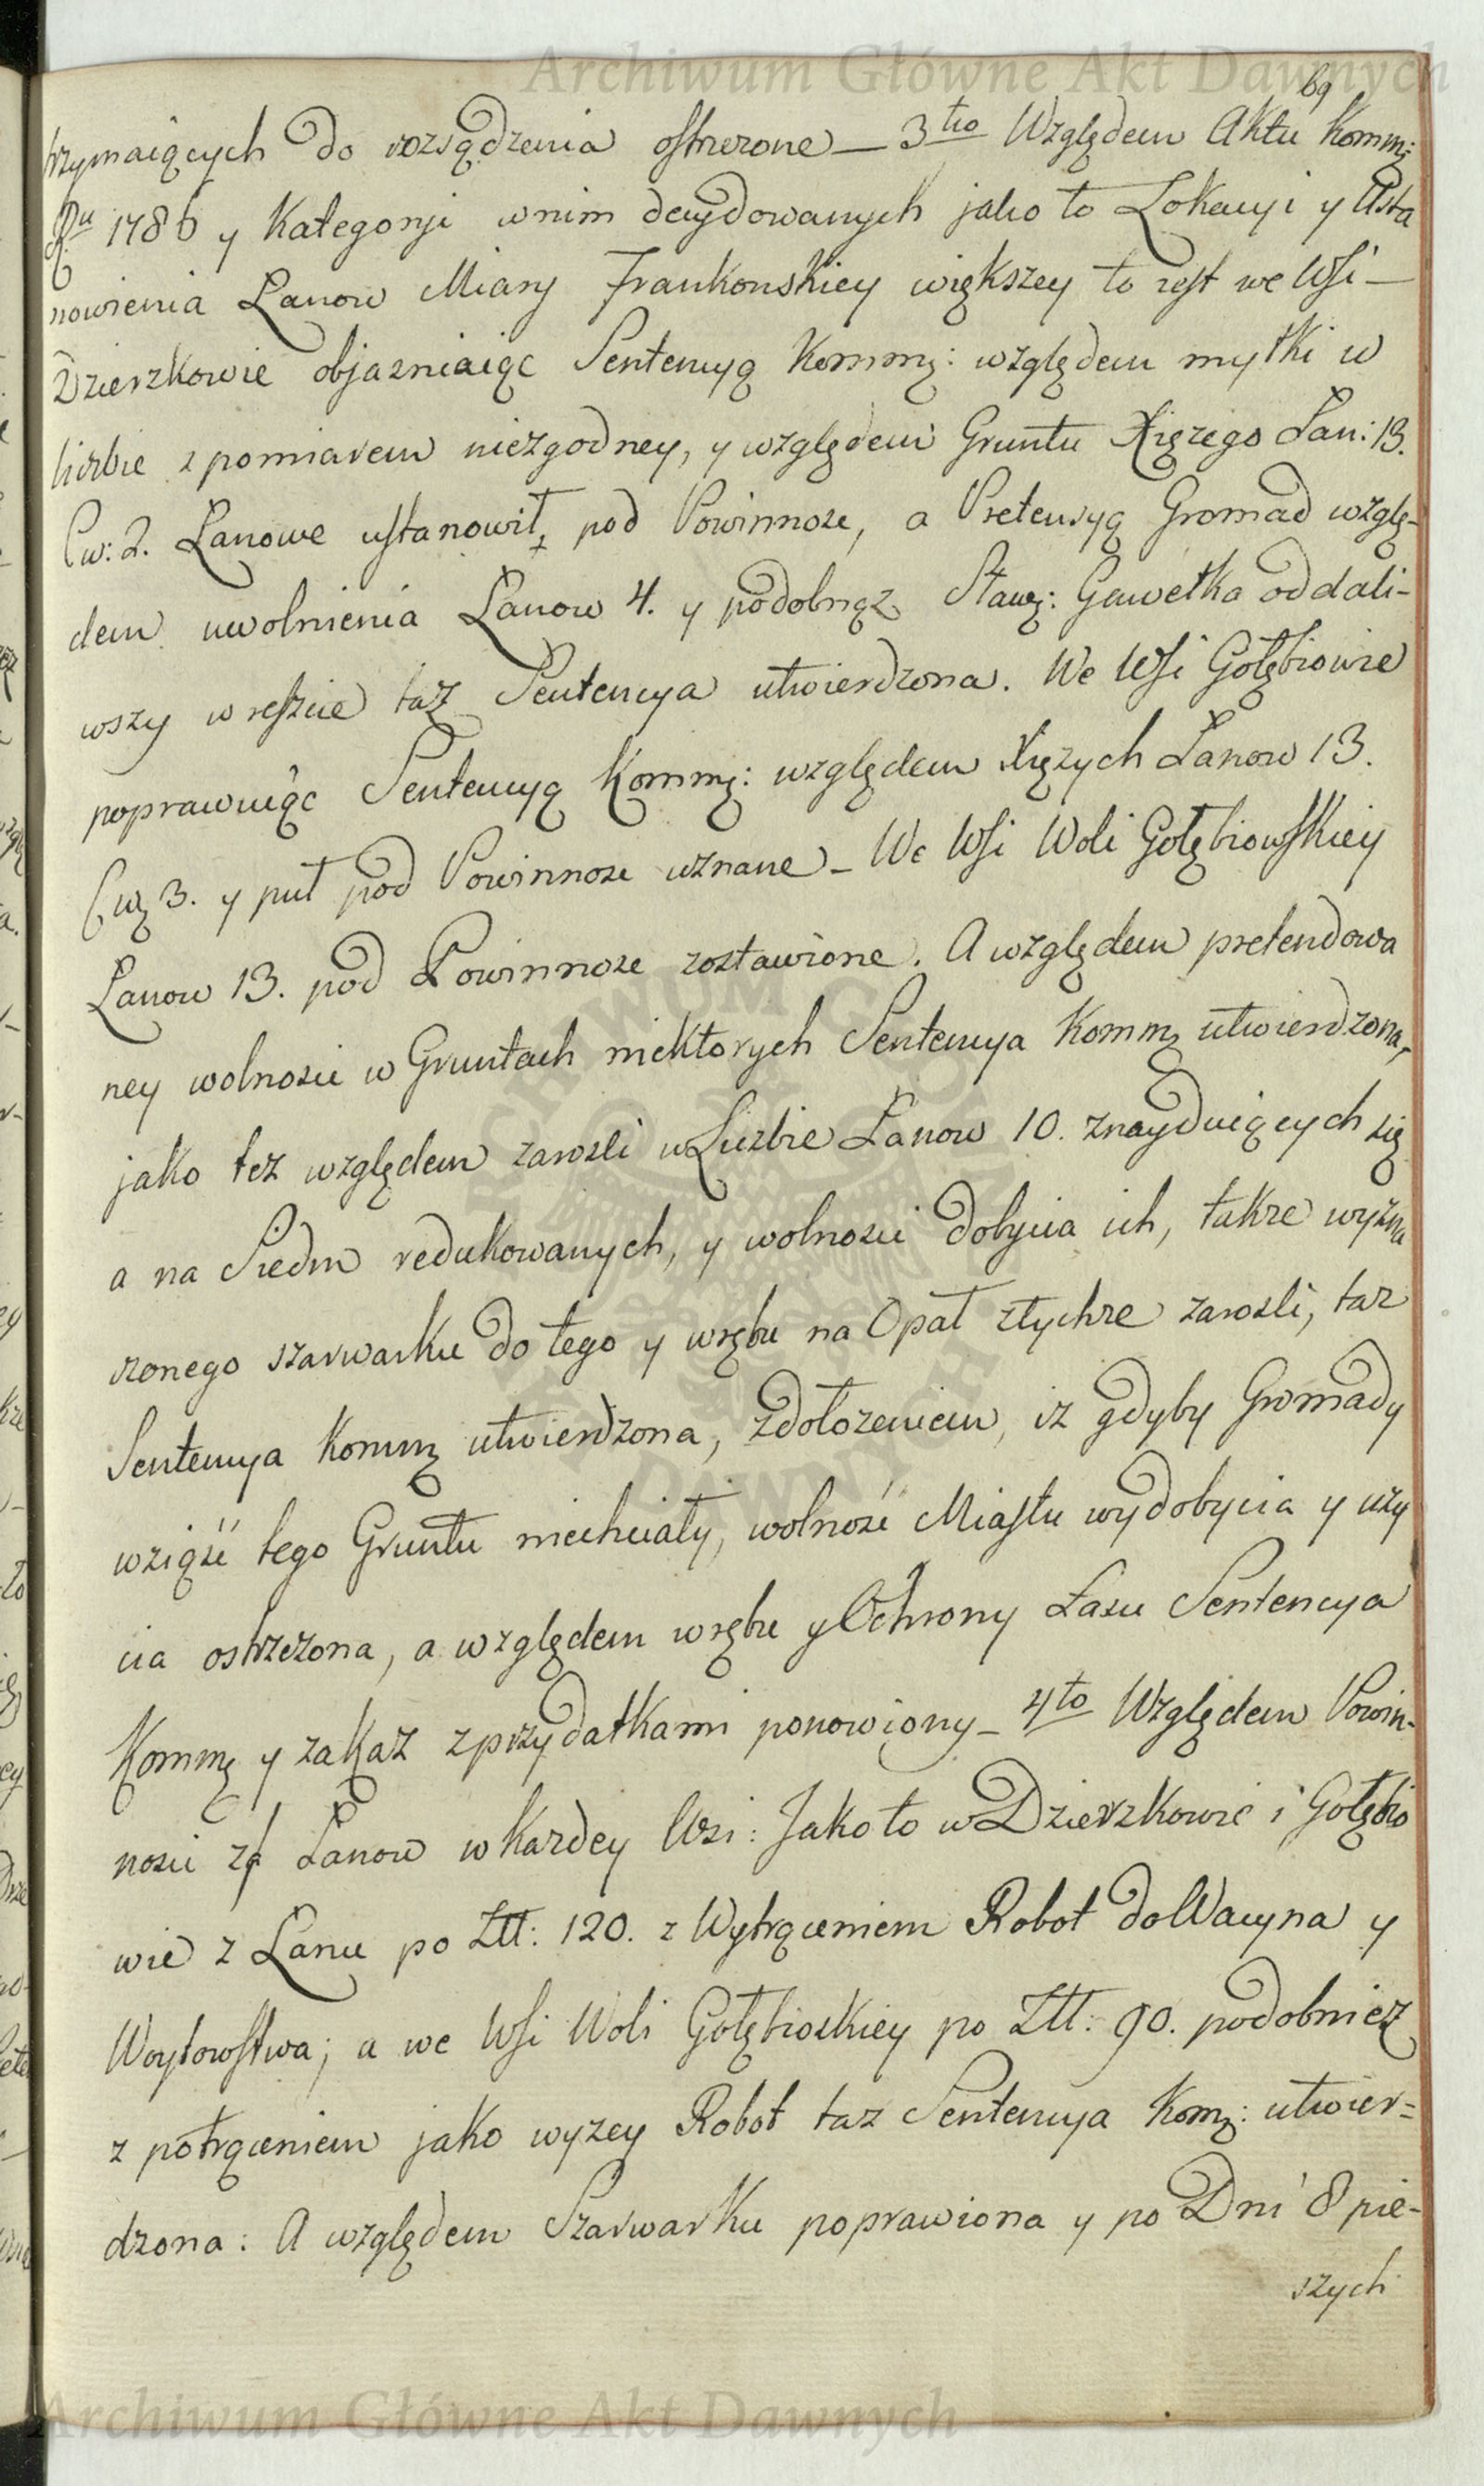 Archiwum Główne Akt Dawnych
69
trzymaiących do rozsądzenia ostrzezone — 3tio Względem Aktu Kommi:
Ru 1786 y Kategoryi wnim decydowanych jako to Lokacyi y Usta
nowienia Łanow Miary Frankonskiey większey to jest we Wsi —
Dzierzkowie objasniaiąc Sentencyą Kommi: względem myłki w
liczbie z pomiarem niezgodney, y względem Gruntu Xięzego Łan: 13.
Cw: 2. Łanowe ustanowił, pod Powinnosc, a Pretensyą Gromad wzglę-
dem uwolnienia Łanow 4. y podobnąz Stawi: Gawełka oddali-
wszy w reszcie taz Sentencya utwierdzona. We Wsi Gołębiowie
poprawuiąc Sentencyą Kommi: względem Xięzych Łanow 13.
Cwi 3. y puł pod Powinnosc uznane — We Wsi Woli Gołębiowskiey
Łanow 13. pod Powinnosc zostawione. A względem pretendowa
ney wolnosci w Gruntach niektorych Sentencya Kommi utwierdzona,
jako tez względem zarosli w Liczbie Łanow 10. znayduiących się
a na Siedm redukowanych, y wolnosci dobycia ich, takze wyzna
czonego szarwarku do tego y wrębu na Opał ztychze zarosli, taz
Sentencya Kommi utwierdzona, zdołozeniem, iz gdyby Gromady
wziąść tego Gruntu niechciały, wolność Miastu wydobycia y uzy
cia ostrzezona, a względem wrębu y Ochrony Lasu Sentencya
Kommi y zakaz z przydatkami ponowiony — 4to Względem Powin-
nosci zá Łanow w Kazdey Wsi: Jako to w Dzierzkowie i Gołębio
wie z Łanu po Złł: 120. z Wytrąceniem Robot do Wacyna y
Woytowstwa; a we Wsi Woli Gołębioskiey po Złł: 90. podobniez
z potrąceniem jako wyzey Robot taz Sentencya Komi: utwier=
dzona: A względem Szarwarku poprawiona y po Dni 8 pie-
szych
Archiwum Główne Akt Dawnych